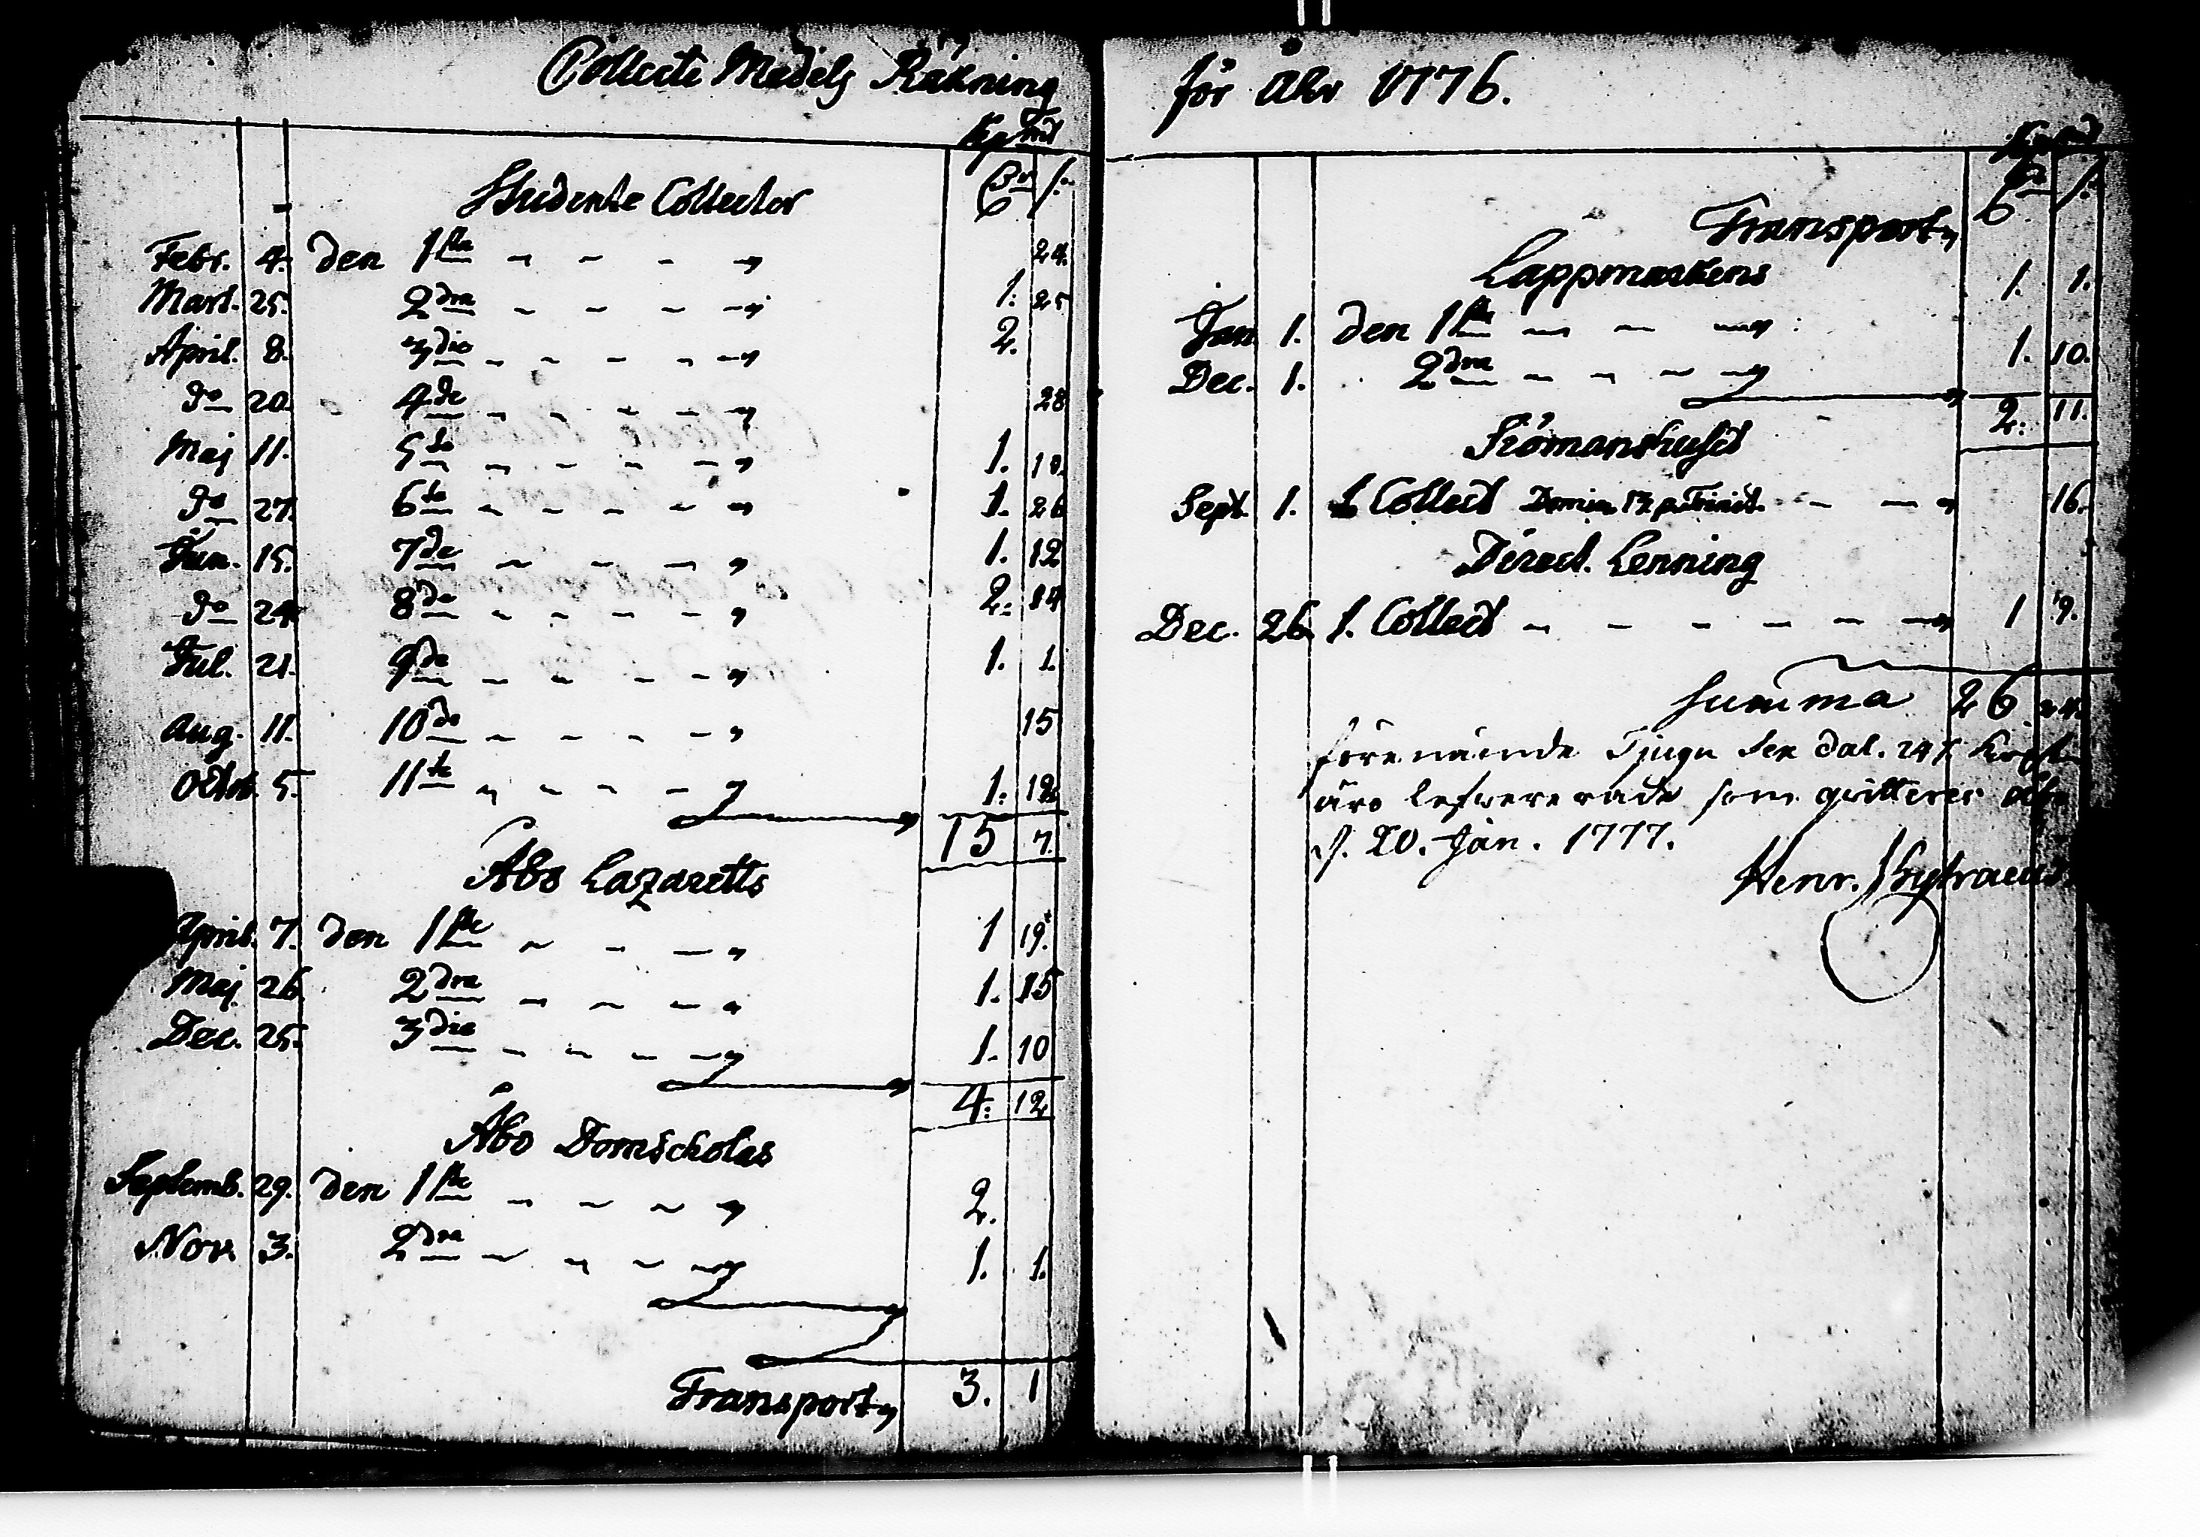 Collecte Medels Räkning
Studente Collecter
Febr. 4. den 1sta 24.
Mart. 25. 2dra 1. 25
April. 8. 3die 2.
do 20. 4de 28
Maj 11. 5te 1. 18.
do 27. 6te 1. 26
Jun. 15. 7de 1. 12
do 24. 8de 2. 14
Jul. 21. 9de 1. 1.
Aug. 11. 10de 15
Octob. 5. 11te 1. 12
15 7.
Åbo Lazaretts
April. 7. den 1ste 1 19.
Maj. 26 2dra 1. 15
Dec. 25. 3die 1. 10
4. 12
Åbo Domscholas
Septemb. 29. den 1ste 2.
Nov. 3. 2dra 1. 1.
Transport 3. 1
för Åhr 1776.
Transport
Lappmarkens
Jan. 1. den 1sta 1. 1.
Dec. 1. 2dra 1. 10.
2. 11.
Siömanshuset
Sept. 1. 1 Collect Domin. 13. p. Trinit. 16.
Direct. Lenning
Dec. 26. 1. Collect 1 9.
Summa 26. 24.
förenämde Tjugu Sex dal. 24
äro lefvererade som qvitteras
d. 20. Jan. 1777.
Henr.